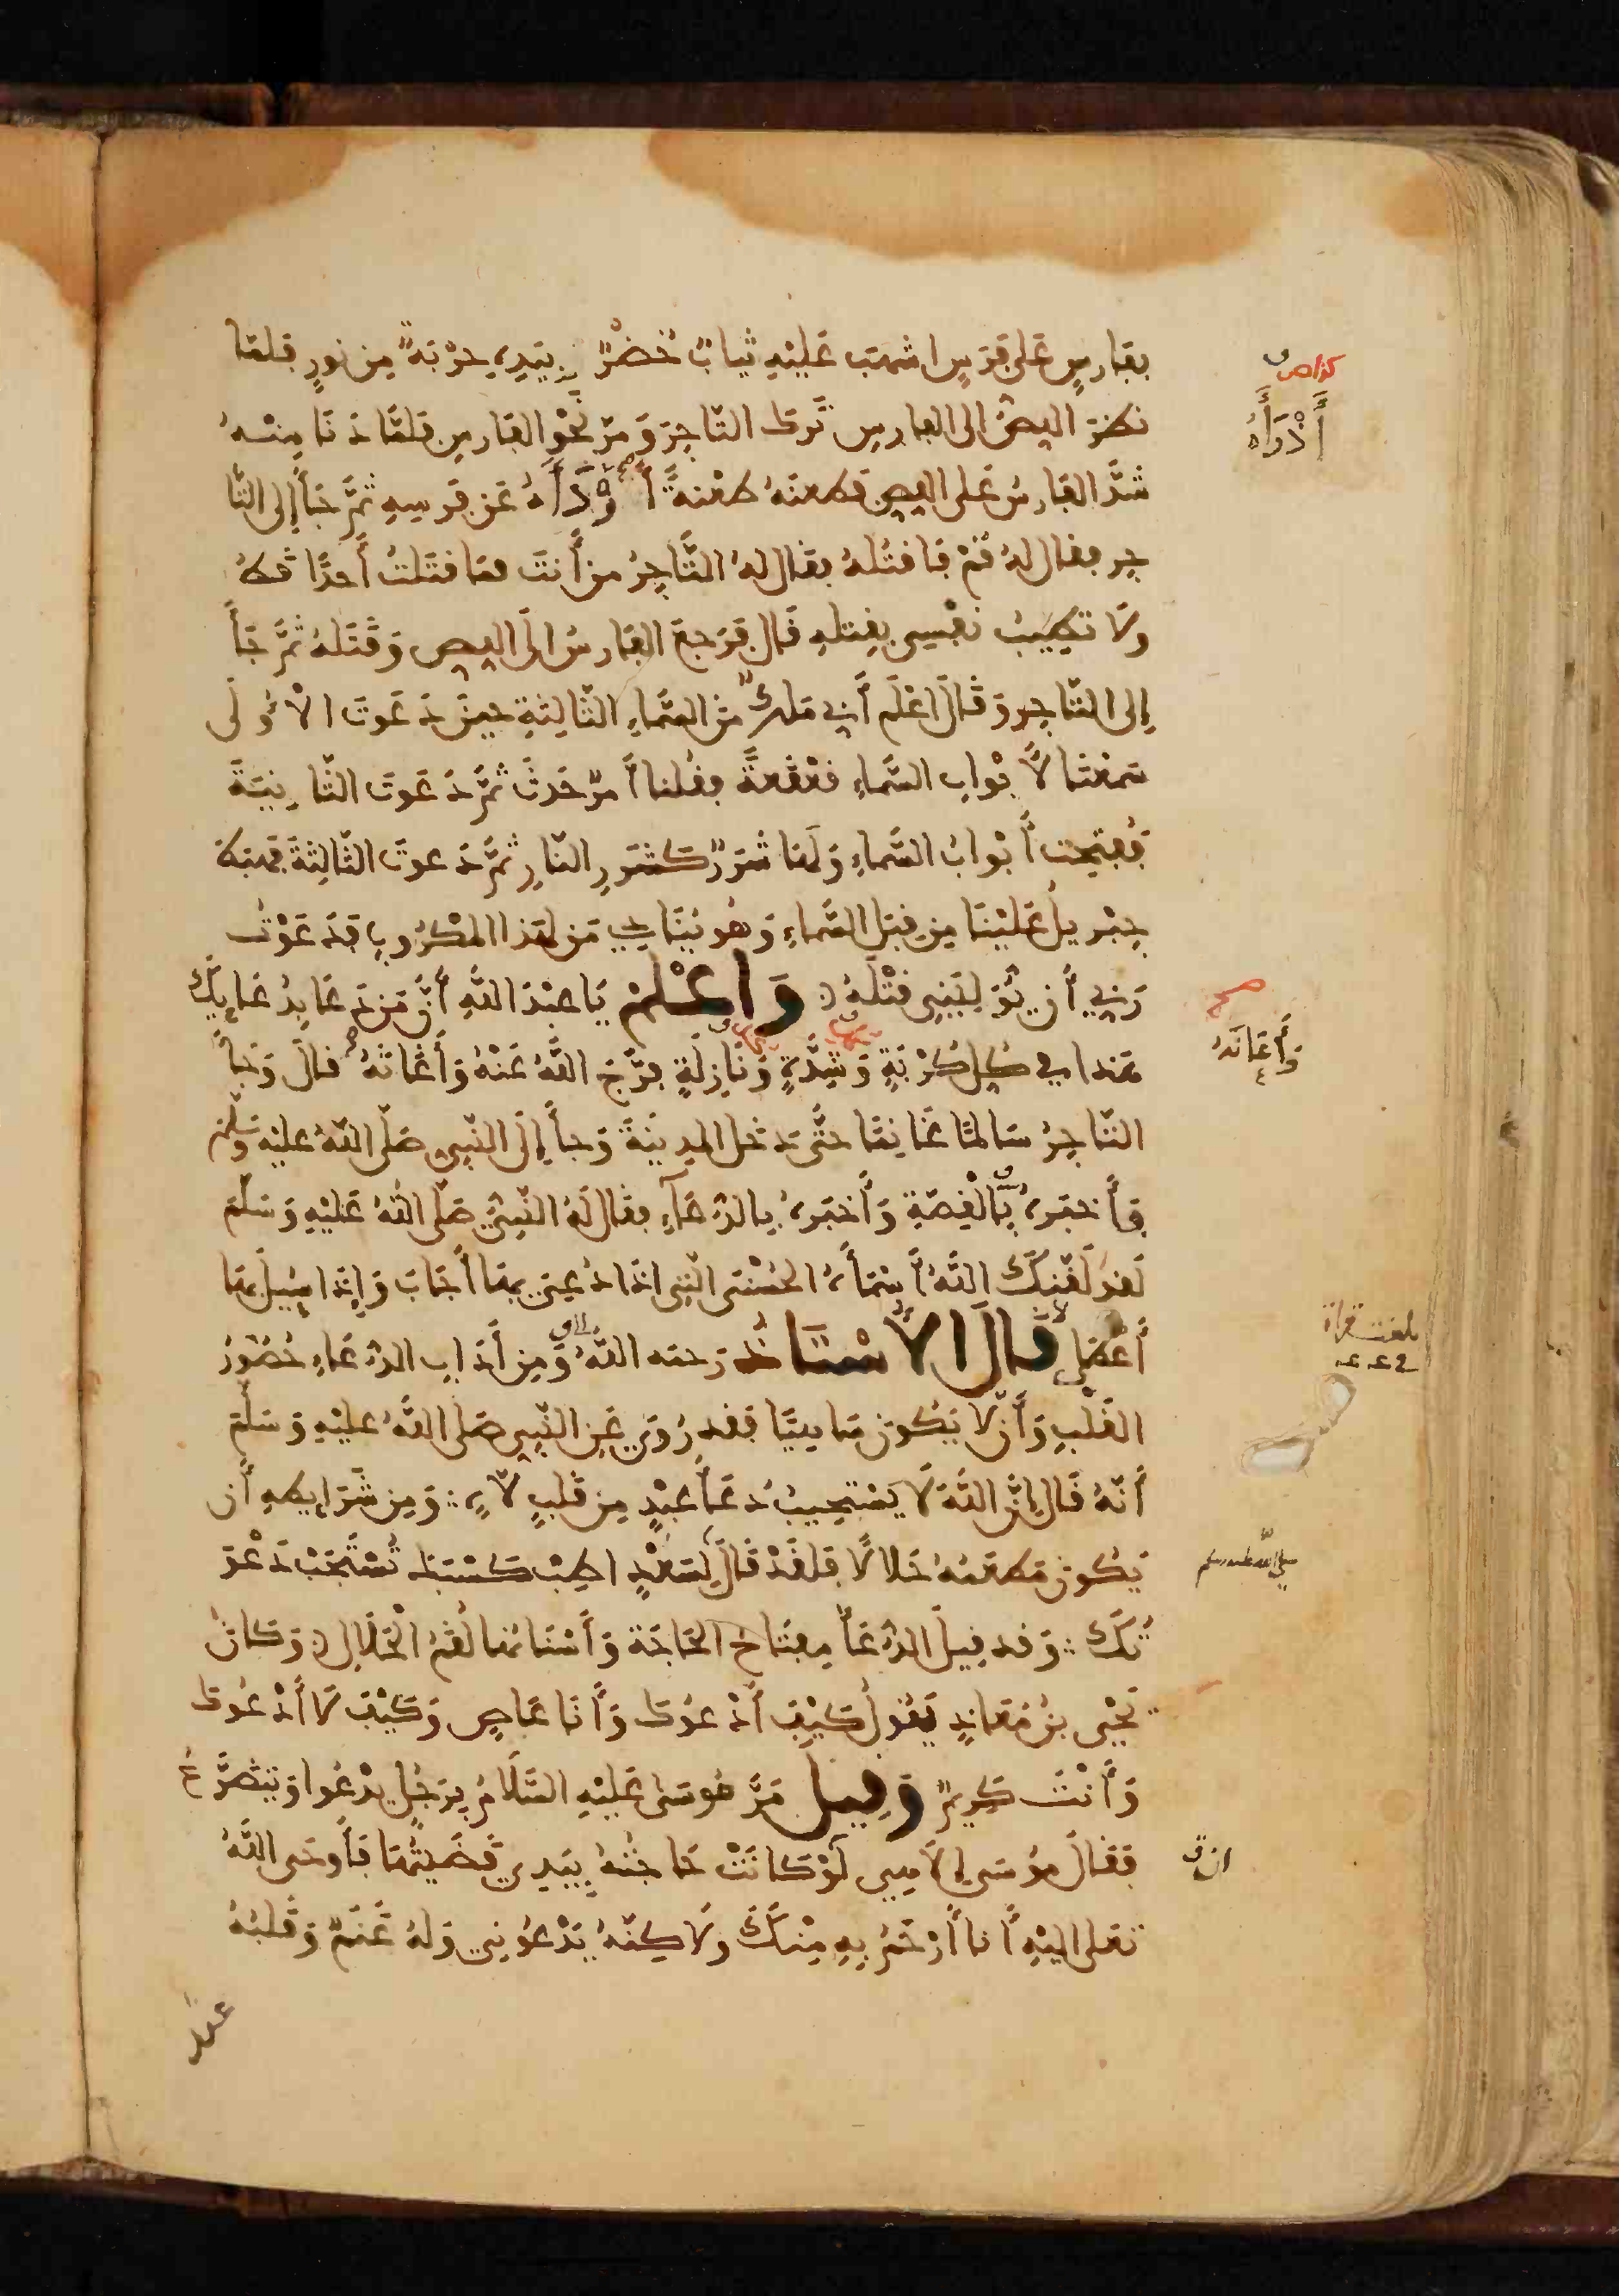 بفارس على فرس اشهب عليه ثياب خضر بيده حربة من نور فلما
نظر اللص الى الفارس ترك التاجر ومر نحو الفارس فلما دنا منه
شد الفارس على اللص فطعنه طعنة أذراه عن فرسه ثم جأ إلى التا
جر فقال له قم فاقتله فقال له التاجر من أنت فما قتلت أحدا قط
ولا تطيب نفسي بقتله قال فرجع الفارس الى اللص وقتله ثم جأ
إلى التاجر وقال اعلم أني ملك من السماء الثالثة حين دعوت الأولى
سمعنا لأبواب السماء قعقعة فقلنا أمر حدث ثم دعوت الثانية
ففتحت أبواب السماء ولها شرر كشرر النار ثم دعوت الثالثة فهبط
جبريل علينا من قبل السماء وهو ينادي من لهذا المكروب فدعوت
ربي أن يوليني قتله واعلم يا عبد الله أن من دعا بدعايك
هذا في كل كربة وشدة ونازلة فرج الله عنه وأغاثه قال وجأ
التاجر سالما غانما حتى دخل المدينة وجأ إلى النبي صلى الله عليه وسلم
فأخبره بالقصة وأخبره بالدعآء فقال له النبي صلى الله عليه وسلم
لقد لقنك الله أسمأه الحسنى التي اذا دعي بها أجاب وإذا سيل بها
أعطى قال الأستاذ رحمه الله ومن أداب الدعاء حضور
القلب وأن لا يكون ساهيا فقد روي عن النبي صلى الله عليه وسلم
أنه قال إن الله لا يستجيب دعأ عبد من قلب لاه ومن شرايطه أن
يكون مطعمه حلالا فلقد قال لسعد اطب كسبك تستجب دعو
تك وقد قيل الدعأ مفتاح الحاجة وأسنانها لقم الحلال وكان
يحيى بن معاذ يقول كيف أدعوك وأنا عاص وكيف لا أدعوك
وأنت كريم وقيل مر موسى عليه السلام برجل يدعوا ويتضرع
فقال موسى إلاهي لو كانت حاجته بيدي قضيتها فأوحى الله
تعلى اليه أنا أرحم به منك ولاكنه يدعوني وله غنم وقلبه
عند
أذراه
صح
وأعانه
بلغت قراءة
صلى الله عليه وسلم